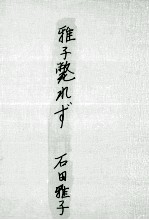 雅子斃れず 石田雅子